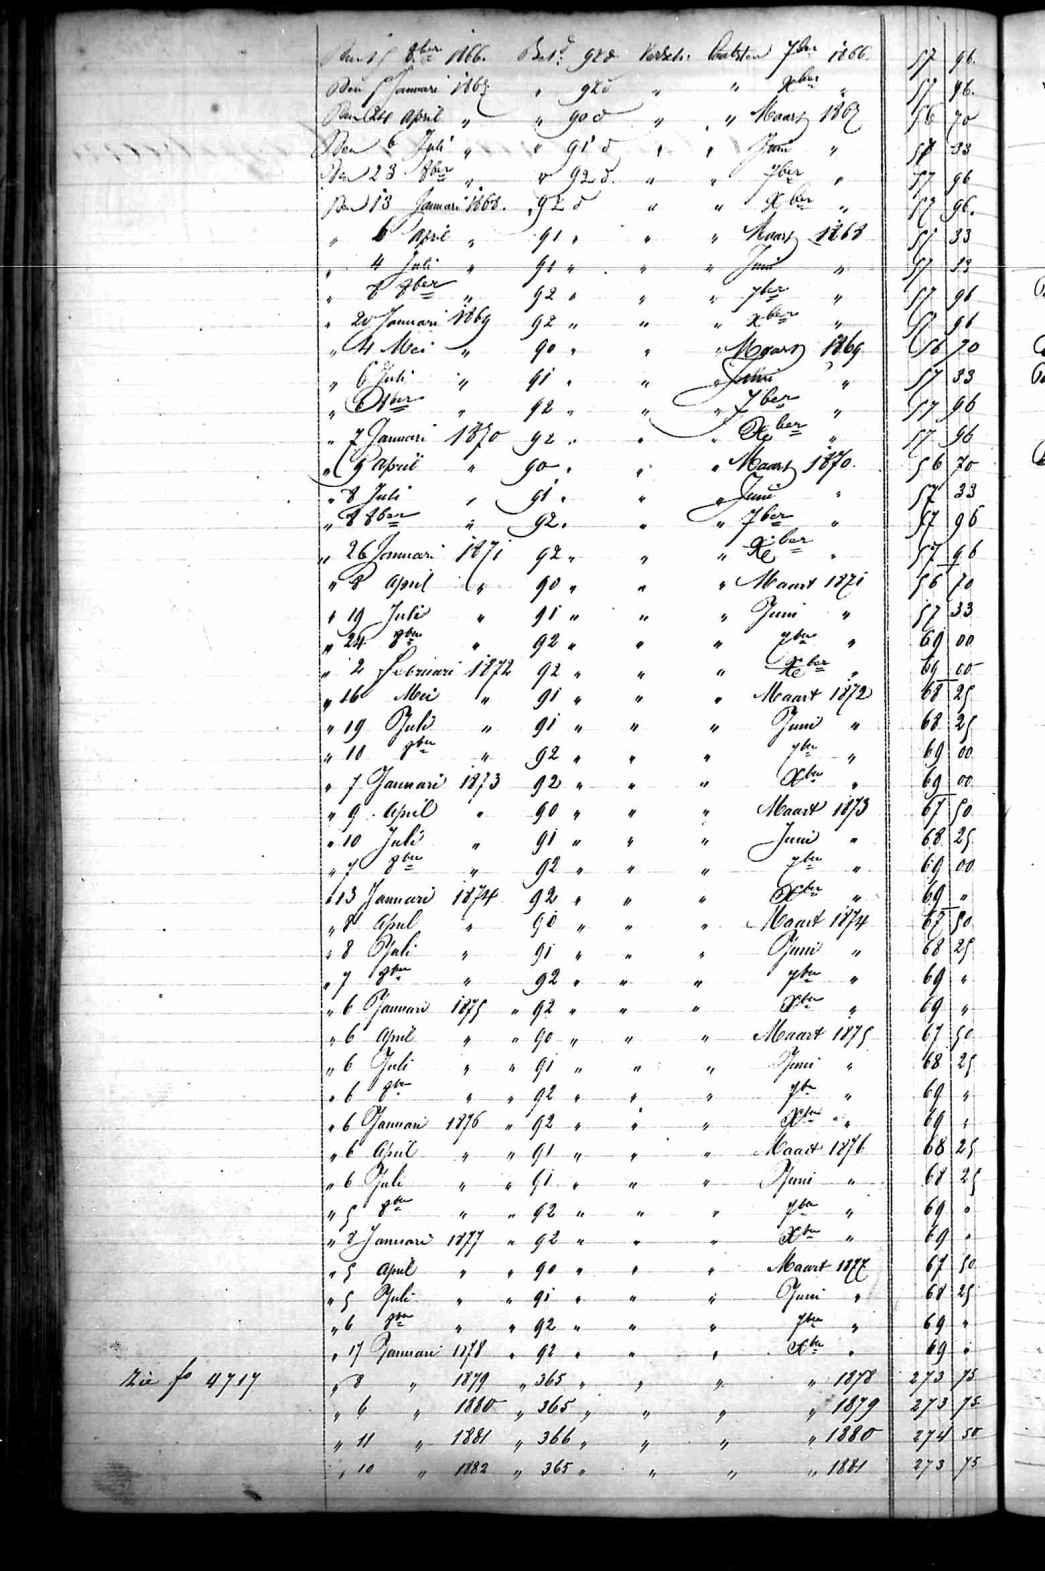 Den 15 8ber 1866. Bet.d 92 d Versch: laatsten 7ber 1866. 57 96.
Den 5 Januari 1867 " 92 d " " Xber " 57 96.
Den 24 April " " 90 d " " Maart 1867 56 70
Den 6 Juli " " 91 d " " Juni " 57 33
Den 23 8ber " " 92 d. " " 7ber " 57 96
Den 13 Januari 1868. " 92 d " " Xber " 57 96.
" 6 April " 91 " " " Maart 1868 57 33
" 4 Juli " 91 " " " Juni " 57 33
" 8 8ber " 92 " " " 7ber " 57 96
" 20 Januari 1869 92 " " " Xber " 57 96
" 4 Mei " 90 " " " Maart 1869 56 70
" 6 Juli " 91 " " " Juni " 57 33
" 6 8ber " 92 " " " 7ber " 57 96
" 7 Januari 1870 92 " " " Xber " 57 96
" 9 April " 90 " " " Maart 1870. 56 70
" 8 Juli " 91 " " " Juni " 57 33
" 8 8ber " 92 " " " 7ber " 57 96
" 26 Januari 1871 92 " " " Xber " 57 96
" 8 April " 90 " " " Maart 1871 56 70
" 19 Juli " 91 " " " Juni " 57 33
" 24 8ber " 92 " " " 7ber " 69 00
" 2 Februari 1872 92 " " " Xber " 69 00
" 16 Mei " 91 " " " Maart 1872 68 25
" 19 Juli " 91 " " " Juni " 68 25
" 10 8ber " 92 " " " 7ber " 69 00
" 7 Januari 1873 92 " " " Xber " 69 00
" 9 April " 90 " " " Maart 1873 67 50
" 10 Juli " 91 " " " Juni " 68 25
" 7 8ber " 92 " " " 7ber " 69 00
" 13 Januari 1874 92 " " " Xber " 69 "
" 8 April " 90 " " " Maart 1874 67 50
" 8 Juli " 91 " " " Juni " 68 25
" 7 8ber " 92 " " " 7ber " 69 "
" 6 Januari 1875 " 92 " " " Xber " 69 "
" 6 April " " 90 " " " Maart 1875 67 50
" 6 Juli " " 91 " " " Juni " 68 25
" 6 8ber " " 92 " " " 7ber " 69 "
" 6 Januari 1876 " 92 " " " Xber " 69 "
" 6 April " " 91 " " " Maart 1876 68 25
" 6 Juli " " 91 " " " Juni " 68 25
" 5 8ber " " 92 " " " 7ber " 69 "
" 8 Januari 1877 " 92 " " " Xber " 69 "
" 5 April " " 90 " " " Maart 1877 67 50
" 5 Juli " " 91 " " " Juni " 68 25
" 6 8ber " " 92 " " " 7ber " 69 "
" 17 Januari 1878 " 92 " " " Xber " 69 "
Zie fo 4717 " 8 " 1879 " 365 " " " " 1878 273 75
" 6 " 1880 " 365 " " " " 1879 273 75
" 11 " 1881 " 366 " " " " 1880 274 50
" 10 " 1882 " 365 " " " " 1881 273 75